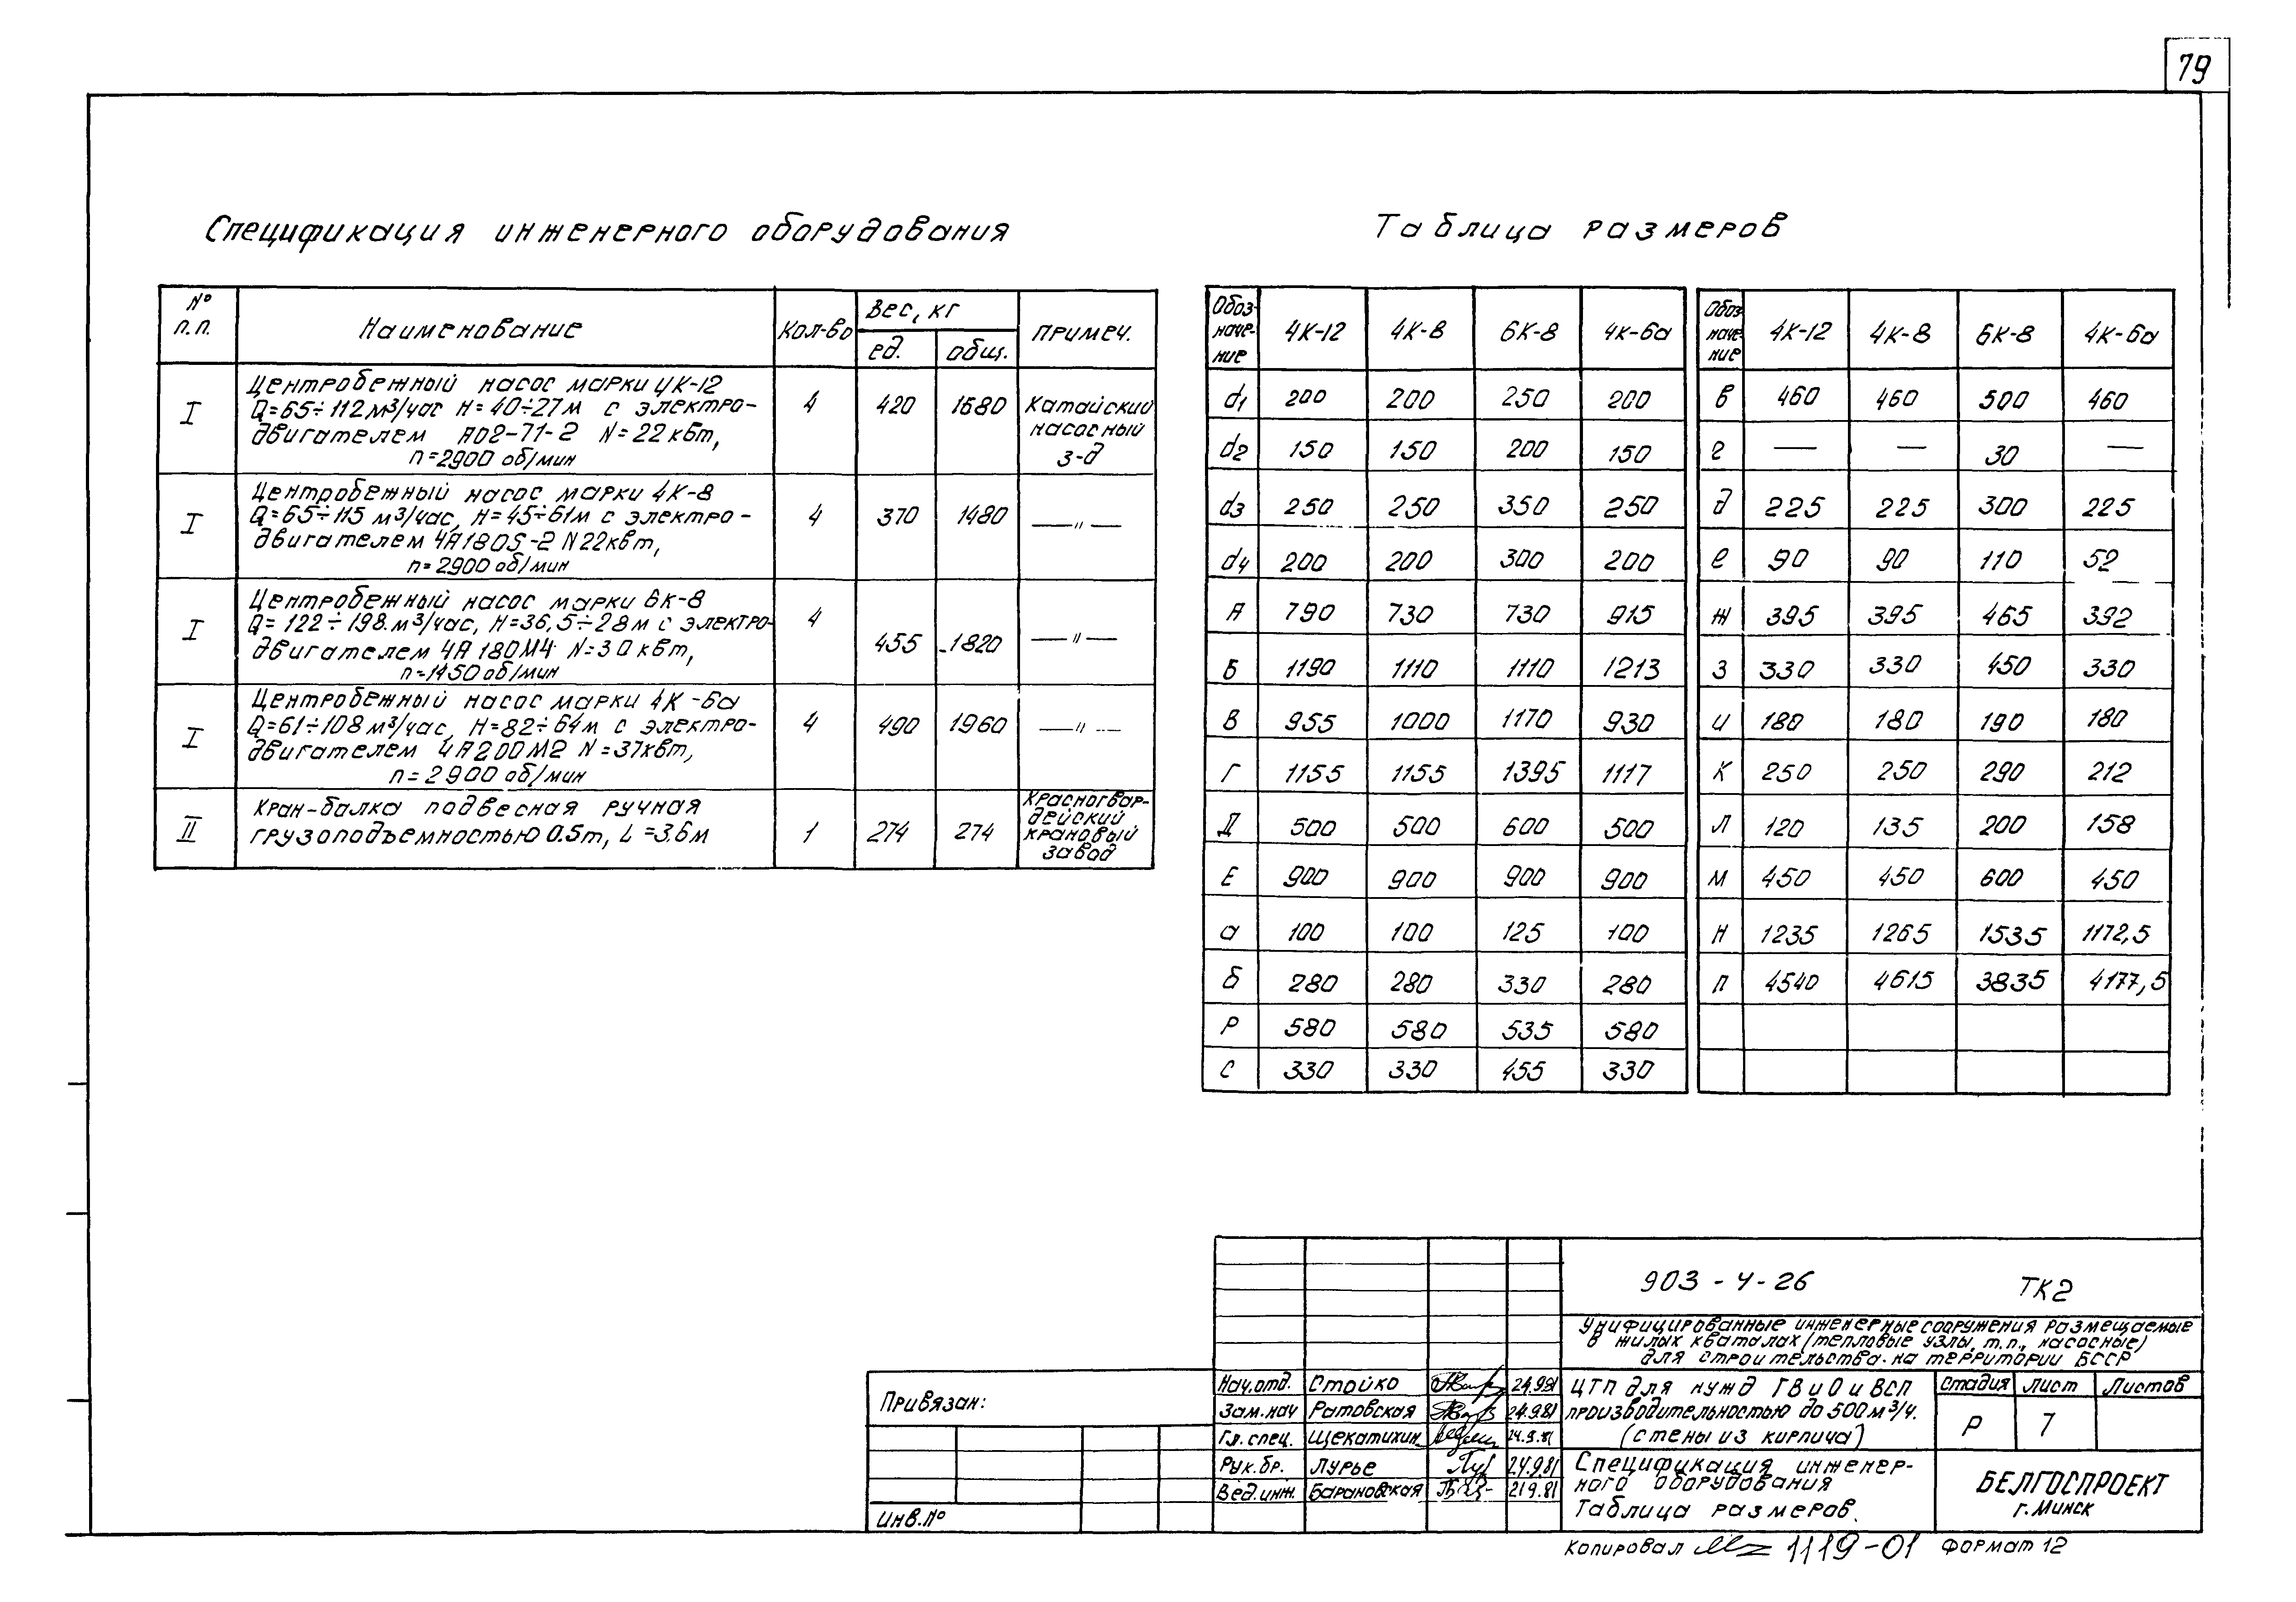 79
Спецификация инженерного оборудования
№ п.п. Наименование Кол-во Вес, кг ед. общ. примеч.
I Центробежный насос марки 4К-12 4 420 1680 Катайский
Q=65÷112м³/час H=40÷27м с электро- насосный
двигателем АО2-71-2 N=22квт, з-д
n=2900 об/мин
I Центробежный насос марки 4К-8 4 370 1480 —〃—
Q=65÷115 м³/час, H=45÷61м с электро-
двигателем 4А180S-2 N22квт,
n=2900 об/мин
I Центробежный насос марки 6К-8 4 455 1820 —〃—
Q=122÷198.м³/час, H=36,5÷28м с электро-
двигателем 4А 180М4 N=30квт,
n=1450 об/мин
I Центробежный насос марки 4К-6а 4 490 1960 —〃—
Q=61÷108 м³/час, H=82÷64м с электро-
двигателем 4А200М2 N=37квт,
n=2900 об/мин
II Кран-балка подвесная ручная 1 274 274 Красногвар-
грузоподъемностью 0.5т, L=3,6м дейский
крановый
завод
Таблица размеров
Обоз-наче-ние 4К-12 4К-8 6К-8 4К-6а
d1 200 200 250 200
d2 150 150 200 150
d3 250 250 350 250
d4 200 200 300 200
А 790 730 730 915
Б 1190 1110 1110 1213
В 955 1000 1170 930
Г 1155 1155 1395 1117
Д 500 500 600 500
Е 900 900 900 900
а 100 100 125 100
б 280 280 330 280
Р 580 580 535 580
С 330 330 455 330
Обоз-наче-ние 4К-12 4К-8 6К-8 4К-6а
в 460 460 500 460
г — — 30 —
д 225 225 300 225
е 90 90 110 52
ж 395 395 465 392
з 330 330 450 330
и 180 180 190 180
к 250 250 290 212
л 120 135 200 158
м 450 450 600 450
н 1235 1265 1535 1172,5
п 4540 4615 3835 4177,5
903-4-26 ТК2
Унифицированные инженерные сооружения размещаемые
в жилых кваталах (тепловые узлы, т.п., насосные)
для строительства на территории БССР
Привязан:
Инв.№
Нач.отд. Стойко 24.9.81
Зам.нач Ратовская 24.9.81
Гл.спец. Щекатихин 24.9.81
Рук.бр. Лурье 24.9.81
Вед.инж. Барановская 21.9.81
ЦТП для нужд ГВ и О и ВСП
производительностью до 500м³/ч.
(стены из кирпича)
Стадия Лист Листов
Р 7
Спецификация инженер-
ного оборудования
Таблица размеров.
БЕЛГОСПРОЕКТ
г. Минск
Копировал 1119-01 Формат 12